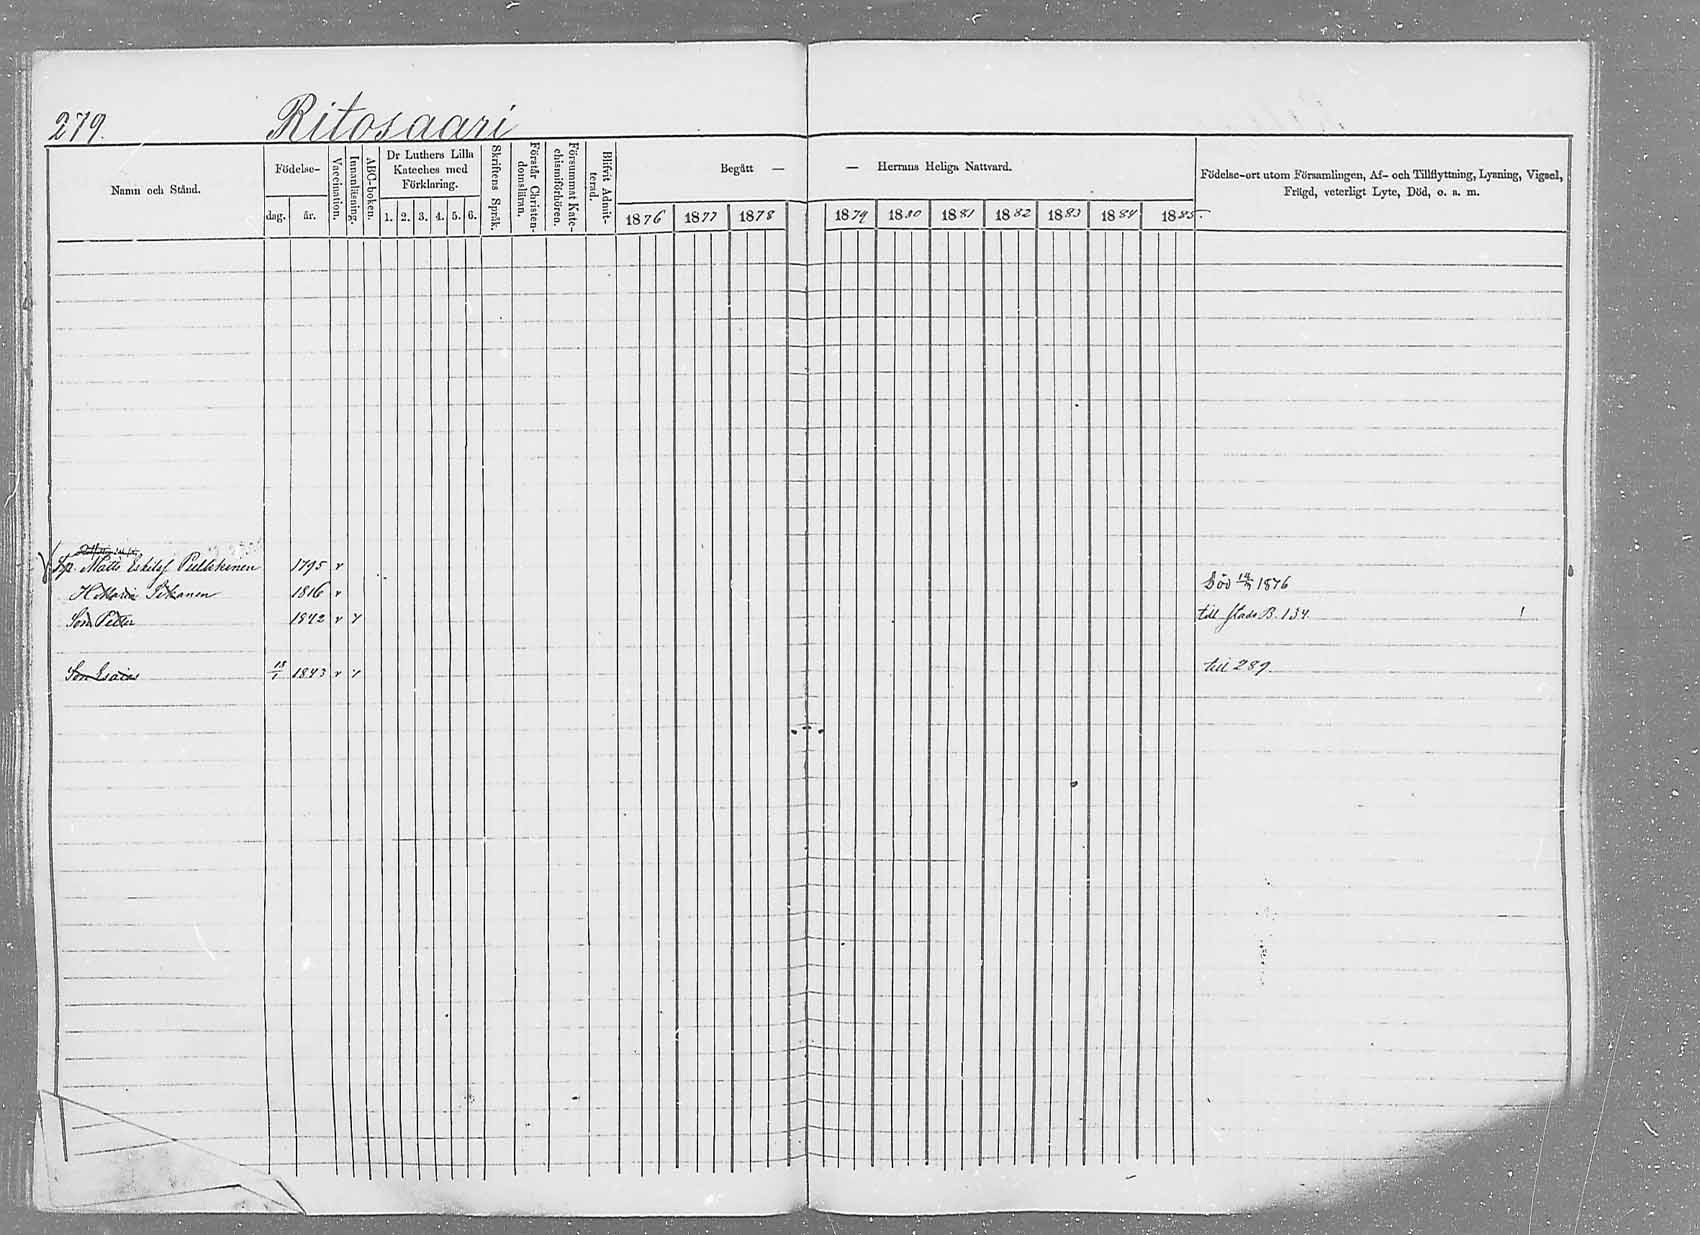 279. Ritosaari
Namn och Stånd.
Födelse-
dag. år.
Vaccination.
Innanläsning.
ABC-boken.
Dr Luthers Lilla
Kateches med
Förklaring.
1. 2. 3. 4. 5. 6.
Skriftens Språk.
Förstår Christen-
domsläran.
Försummat Kate-
chismiförhören.
Blifvit Admit-
terad.
Begått — — Herrans Heliga Nattvard.
1876 1877 1878 1879 1880 1881 1882 1883 1884 1885.
Födelse-ort utom Församlingen, Af- och Tillflyttning, Lysning, Vigsel,
Frägd, veterligt Lyte, Död, o. s. m.
Matts 1795 v
H. Maria 1816 v Död 1876
Son Petter 1842 v v till B. 134.
Son Esaias 18/1 1843 v v till 289.